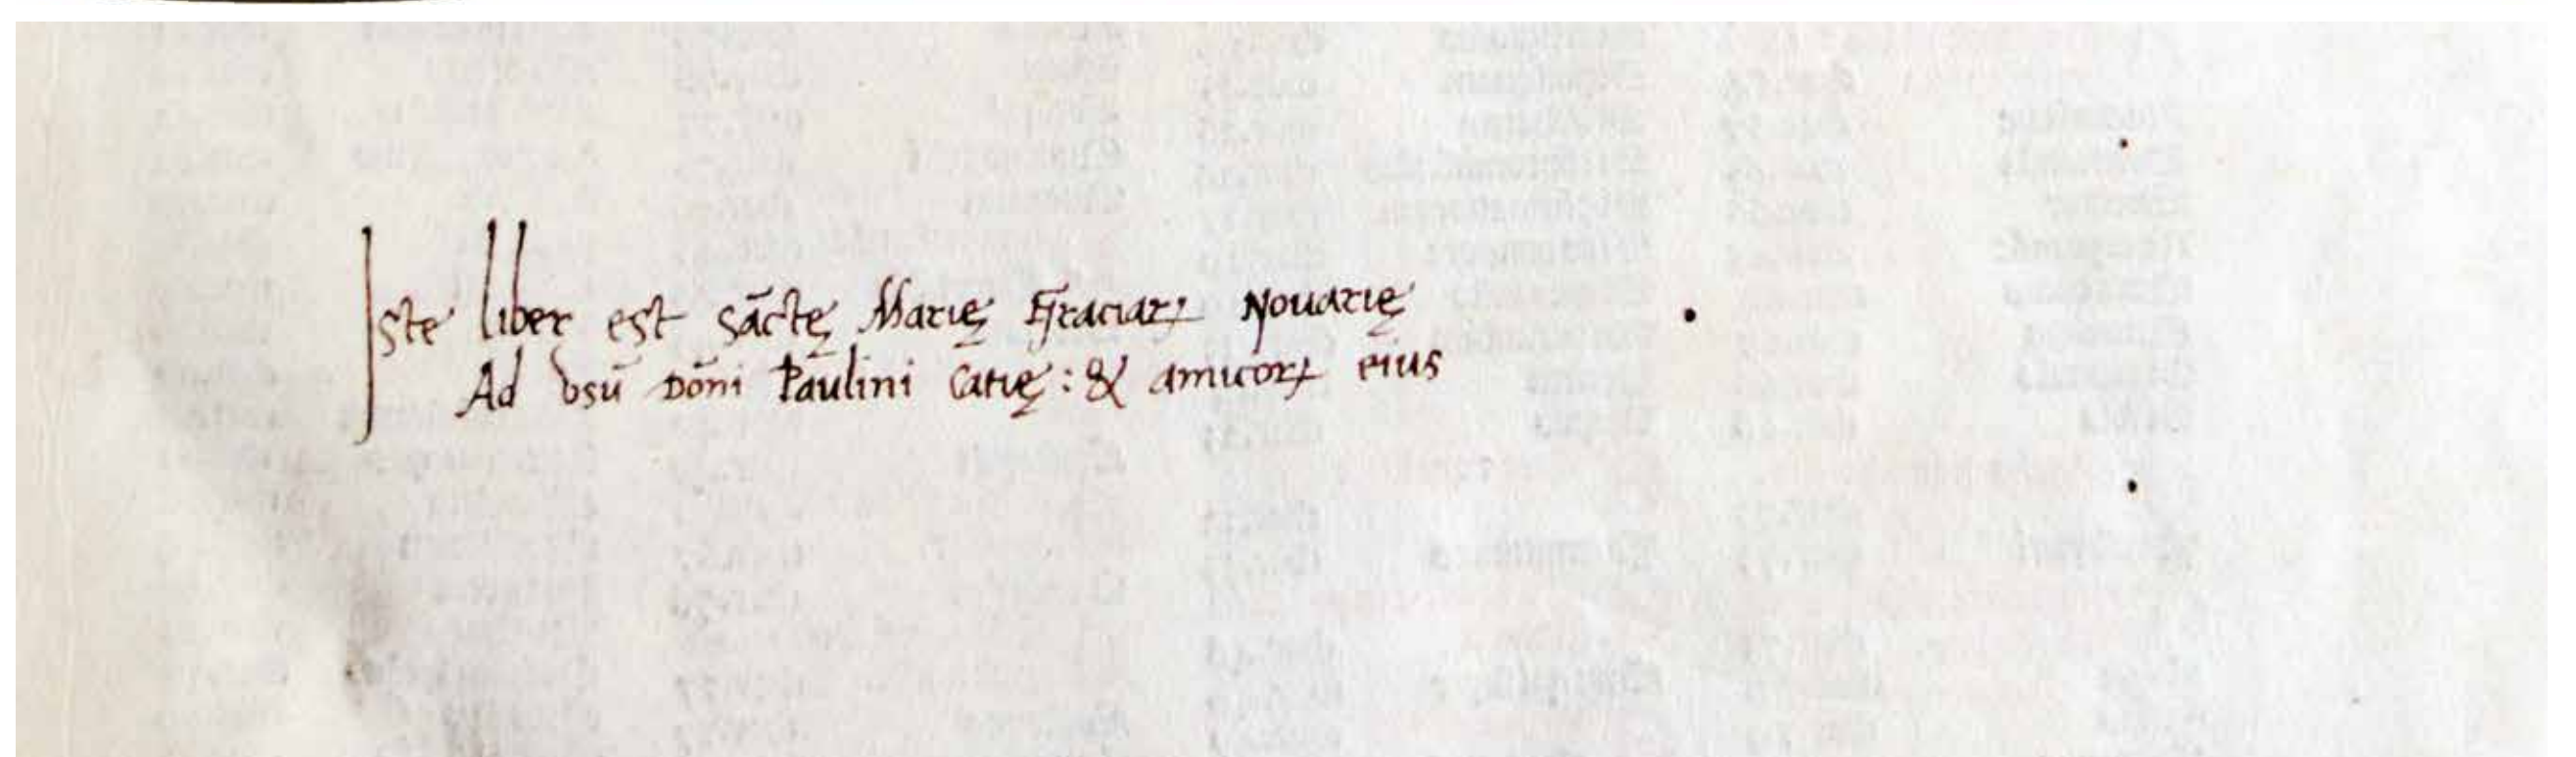 Iste liber est sāctę Marię Graciaꝝ Nouarię
Ad vsū Dōni Paulini Catię: & amicoꝝ eius